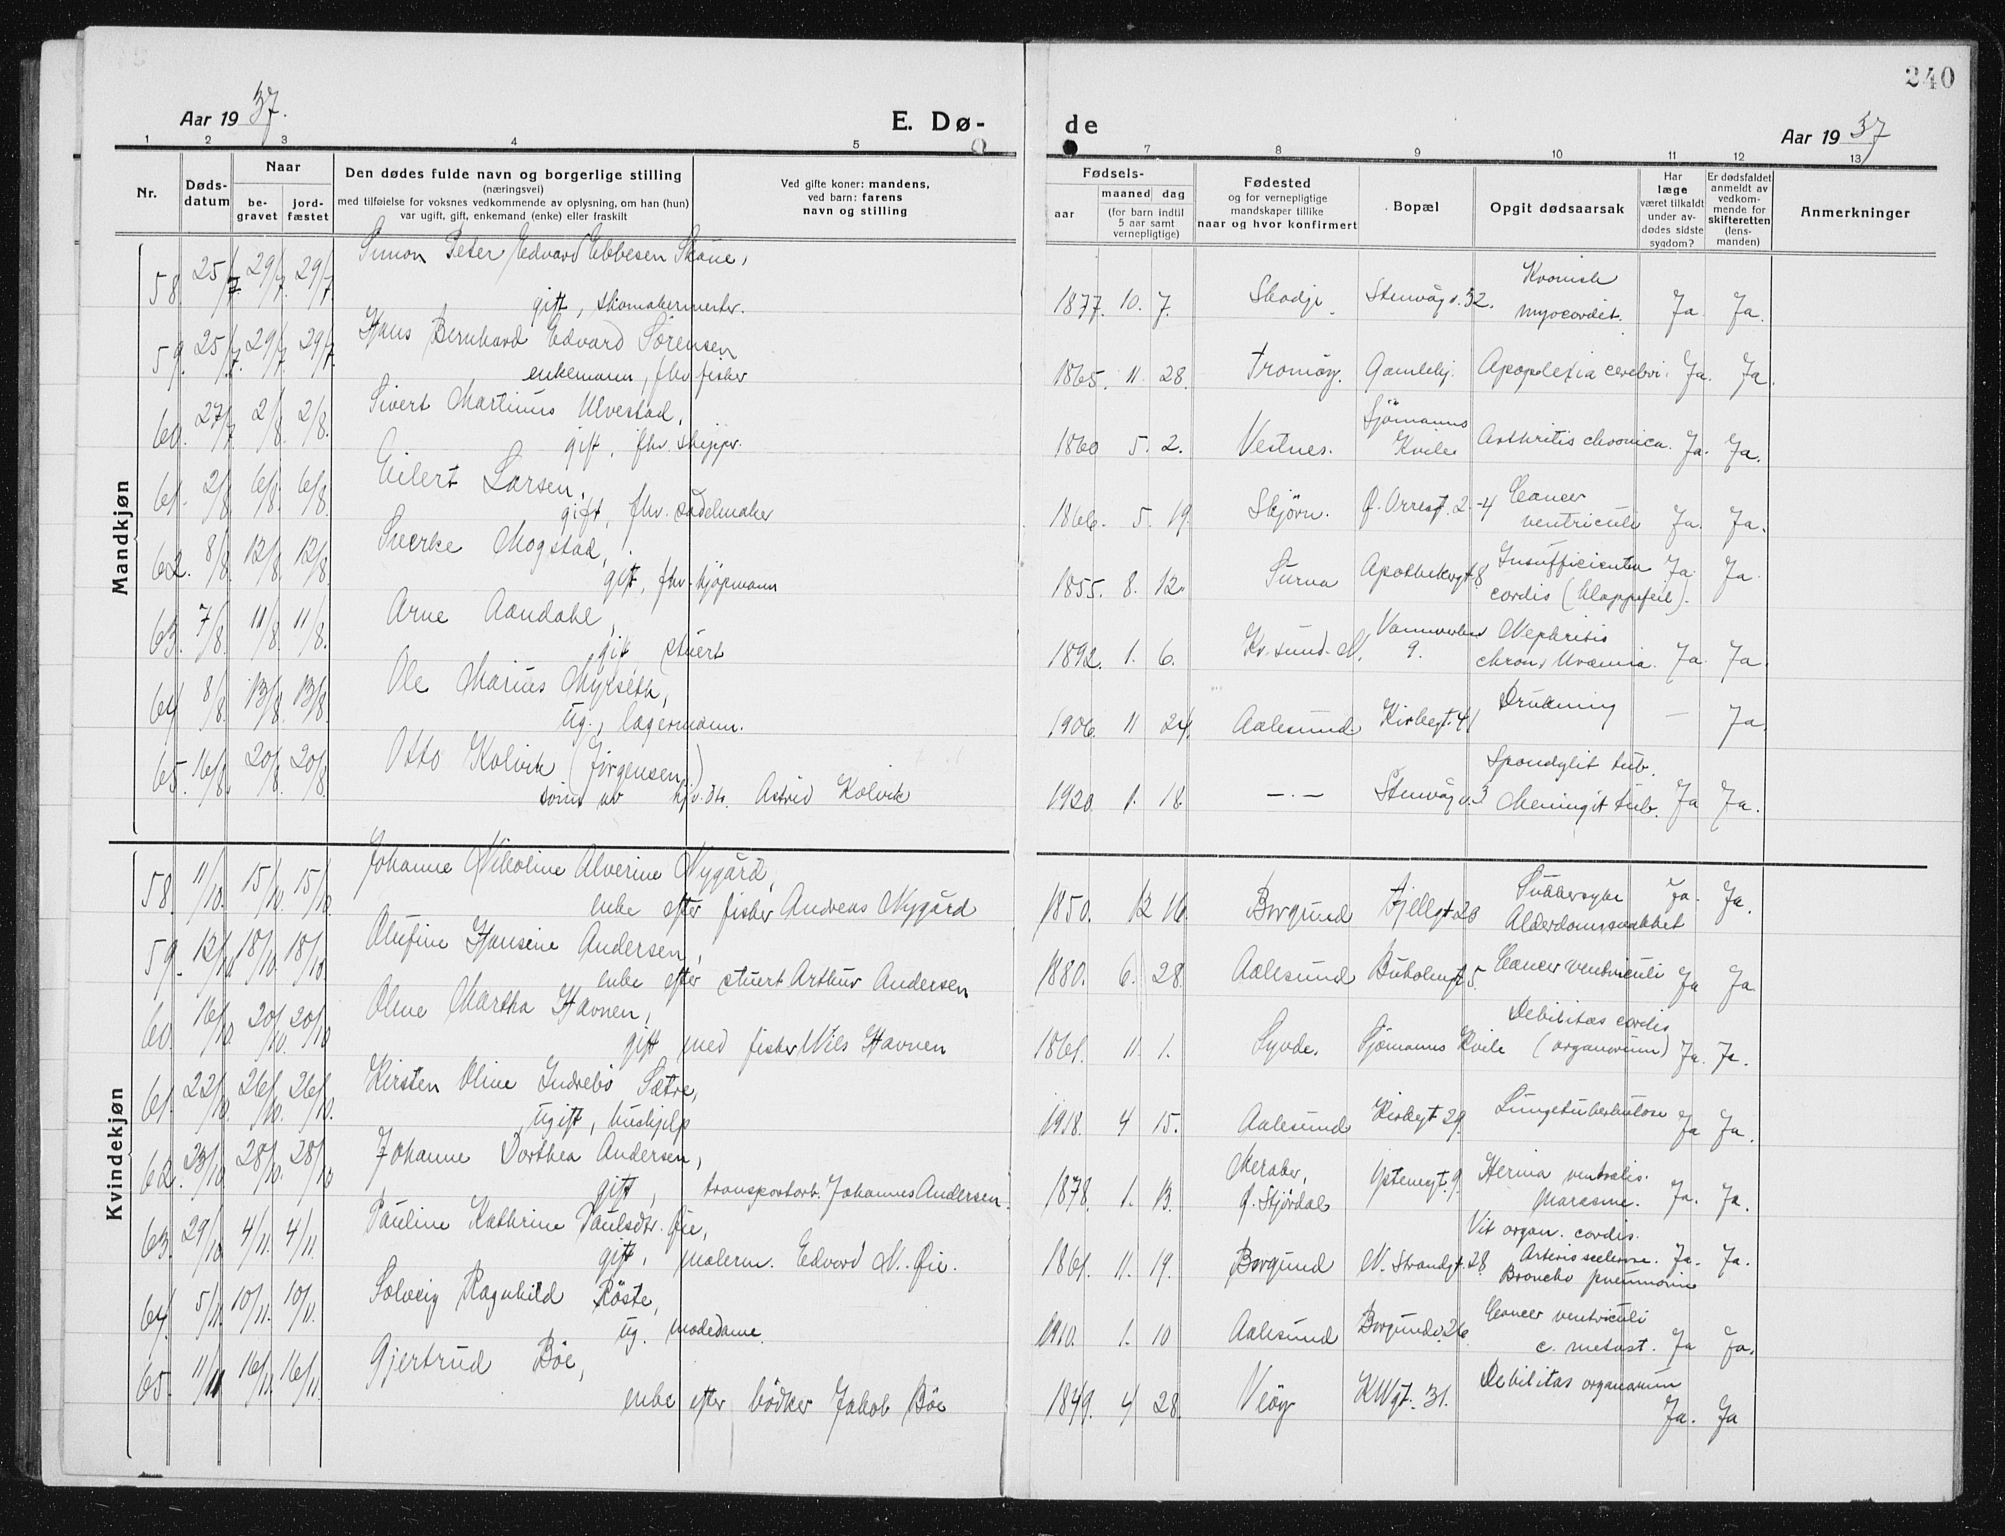 240
Aar 1937.
E. Dø-
de
Aar 1937
1 2 3 4 5
7 8 9 10 11 12 13
Nr.
Døds-datum
Naar
be-gravet
jord-fæstet
Den dødes fulde navn og borgerlige stilling
(næringsvei)
med tilføielse for voksnes vedkommende av oplysning, om han (hun)
var ugift, gift, enkemand (enke) eller fraskilt
Ved gifte koner: mandens,
ved barn: farens
navn og stilling
Fødsels-
aar
maaned dag
(for barn indtil
5 aar samt
vernepligtige)
Fødested
og for vernepligtige
mandskaper tillike
naar og hvor konfirmert
Bopæl
Opgit dødsaarsak
Har
læge
været tilkaldt
under av-
dødes sidste
sygdom?
Er dødsfaldet
anmeldt av
vedkom-
mende for
skifteretten
(lens-
manden)
Anmerkninger
Mandkjøn
58. 25/7. 29/7. 29/7. Simon Peter Edvard Ebbesen Skoue,
gift, skomakermester. 1877. 10. 7. Skodje. Stenvåg v. 32. Kronisk
myocardit. Ja. Ja.
59. 25/7. 29/7. 29/7. Hans Bernhard Edvard Sørensen
enkemann, fhv. fisker 1865. 11. 28. Tromøy. Gamlehj. Apoplexia cerebri. Ja. Ja.
60. 27/7 2/8. 2/8. Sivert Martinus Ulvestad,
gift, fhv. skipper. 1860 5. 2. Vestnes. Sjømanns
Kvile Arthritis chronica. Ja. Ja.
61. 2/8. 6/8. 6/8. Eilert Larsen,
gift, fhv. sadelmaker 1866. 5. 19. Skjørn. Ø. Orrest. 2-4 Cancer
ventriculi Ja. Ja.
62. 8/8. 12/8. 12/8. Sverke Mogstad,
gift, fhv. kjøpmann 1855. 8. 12. Surna Apothekergt 8. Insufficientia
cordis (klappefeil). Ja. Ja.
63. 7/8. 11/8. 11/8. Arne Aandahl,
gift, stuert 1892. 1. 6. Kr.sund. N. 9. Nephritis
chron. Uræmia. Ja. Ja.
64. 8/8. 13/8. 13/8. Ole Marius Myrseth,
ug., lagermann. 1906. 11 24. Aalesund. Kirkegt. 41 Drukning — Ja
65. 16/8. 20/8. 20/8. Otto Kolvik (Jørgensen)
sønn av Astrid Kolvik 1920. 1. 18. —.— Stenvåg v. 3 Spondylit tub.
Meningit tub. Ja Ja.
Kvindekjøn
58. 11/10. 15/10. 15/10. Johanne Nikoline Alverine Nygård,
enke efter fisker Andreas Nygård 1850. 12 16. Borgund Fjellgt 23 Sukkersyke
Alderdomssvakhet Ja. Ja.
59. 12/10 18/10. 18/10. Olufine Hansine Andersen,
enke efter stuert Arthur Andersen 1880. 6. 28. Aalesund Buholmgt 5. Cancer ventriculi Ja Ja.
60. 16/10. 20/10. 20/10 Oline Martha Havnen,
gift med fisker Nils Havnen 1861. 11. 1. Syvde. Sjømanns Kvile Debilitas cordis
(organorum) Ja. Ja.
61. 22/10. 26/10. 26/10. Kirsten Oline Indrebø Sætre,
ugift, hushjelp 1918. 4 15. Aalesund Kirkegt 29. Lungetuberkulose Ja Ja.
62. 23/10 28/10. 28/10 Johanne Dorthea Andersen,
gift, transportarb. Johannes Andersen. 1878. 1. 13. Meraker,
Ø. Stjørdal Ystenesgt. 9. Hernia ventralis.
Marasme. Ja. Ja.
63. 29/10 4/11. 4/11. Pauline Kathrine Paulsdtr. Øie,
gift, malerm. Edvard M. Øie. 1861. 11. 19. Borgund N. Strandgt. 28 Vit organ. cordis.
Arteriosclerose. Ja. Ja.
Broncho pneumonie
64. 5/11. 10/11. 10/11. Solveig Ragnhild Røste,
ug. modedame. 1910. 1. 10 Aalesund Borgundv. 26 Cancer ventriculi
c. metast. Ja Ja.
65. 11/11 16/11. 16/11. Gjertrud Bøe,
enke efter bødker Jakob Bøe 1849. 4 28. Veøy KWgt. 31. Debilitas organorum
Ja. Ja